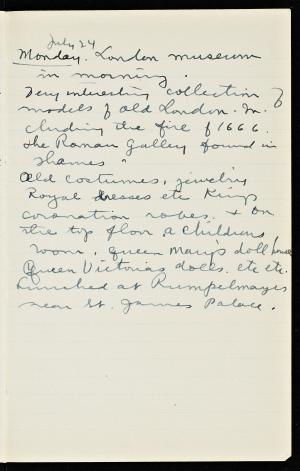 July 24
Monday. London museum
in morning.
Very interesting collection of
models of old London. In-
cluding the fire of 1666.
The Roman Galley found in
Thames "
Old costumes, jewelry
Royal dresses etc Kings
coronation robes. + on
the top floor a childrens
room, queen Mary's doll house
Queen Victorias dolls. etc etc.
Lunched at Rumpelmayers
near St. James Palace.